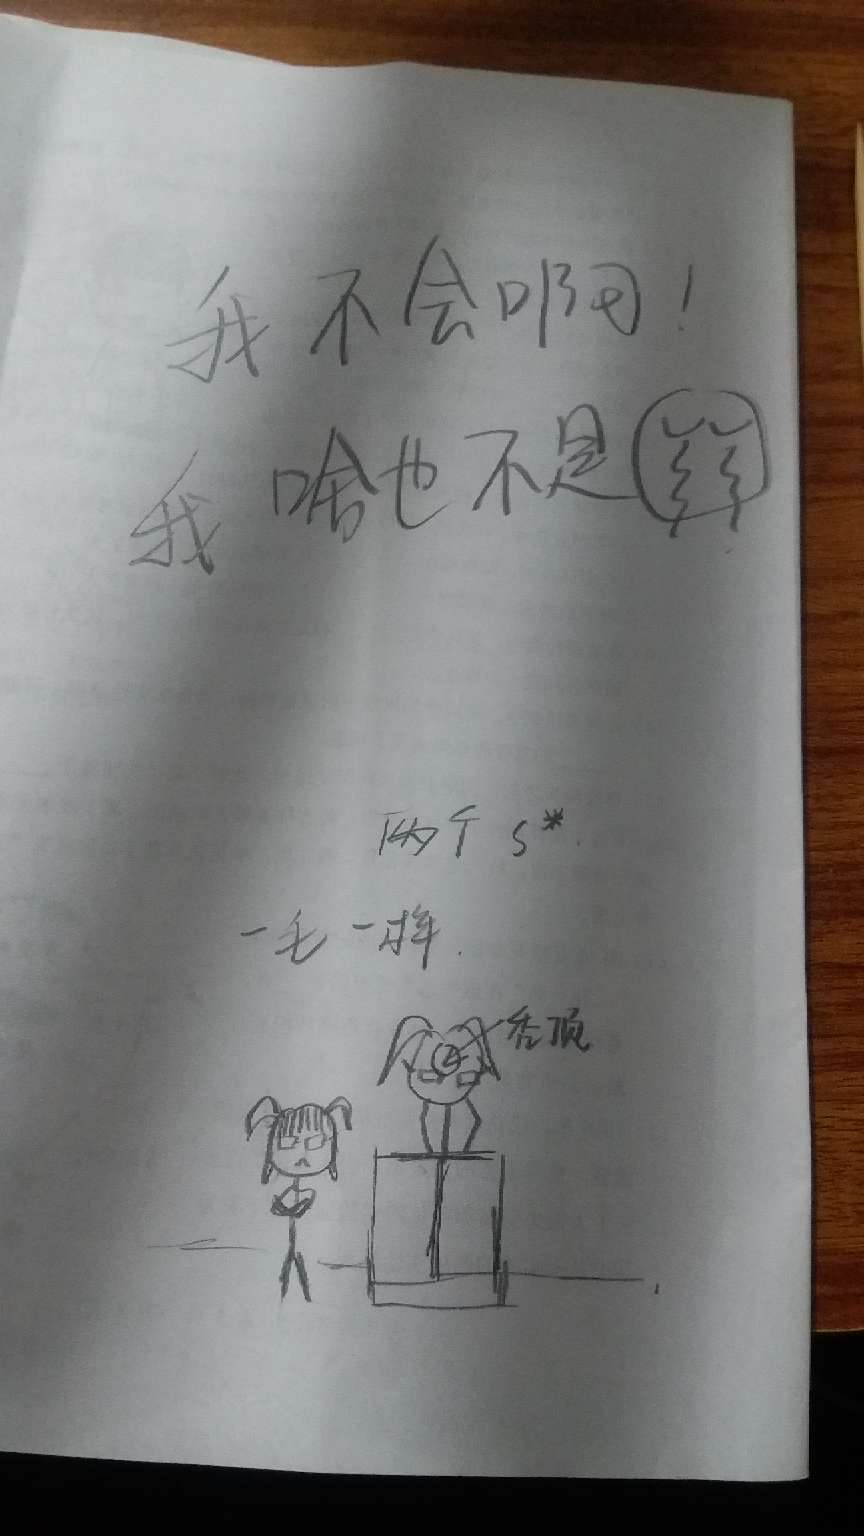 我不会啊！
我啥也不是
两个 s*
一毛一样.
秃顶